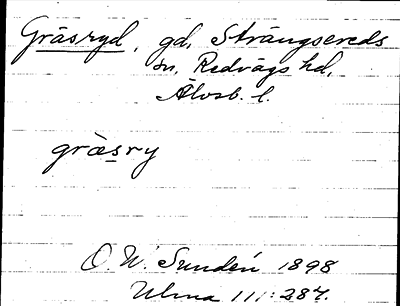 Gräsryd, gd, Strängsereds
sn, Redvägs hd,
Älvsb. l.
græsry
O. W. Sundén 1898
Ulma 111:287.